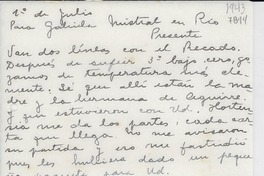 1943
1º de Julio
7814
Para Gabriela Mistral en Rio
Presente
Van dos líneas con el Recado.
Después de sufrir 3º bajo cero, go-
zamos de temperatura más cle-
mente. Sé que allí están la ma-
dre y la hermana de Aguirre
y que estuvieron con Ud. Horten-
sia me da los partes, cada car-
ta que llega no me avisaron
su partida y eso me fastidió
pues les hubiera dado un peque-
ño para Ud.